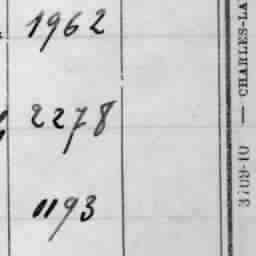 1962
2278
1193
3709-10 — CHARLES-LA